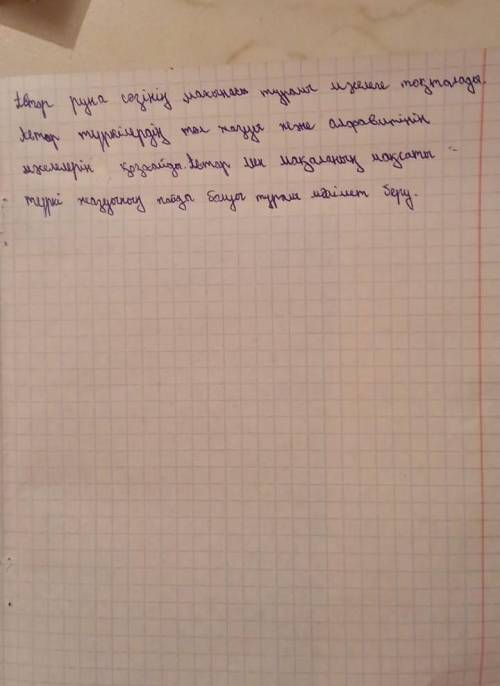 Автор руна сөзінің мағынасы туралы мәселеге тоқталады.
Автор түркілердің төл жазуы және алфавитінің
мәселелерін қозғайды. Автор мен мақаланың мақсаты -
түркі жазуының пайда болуы туралы мәлімет беру.